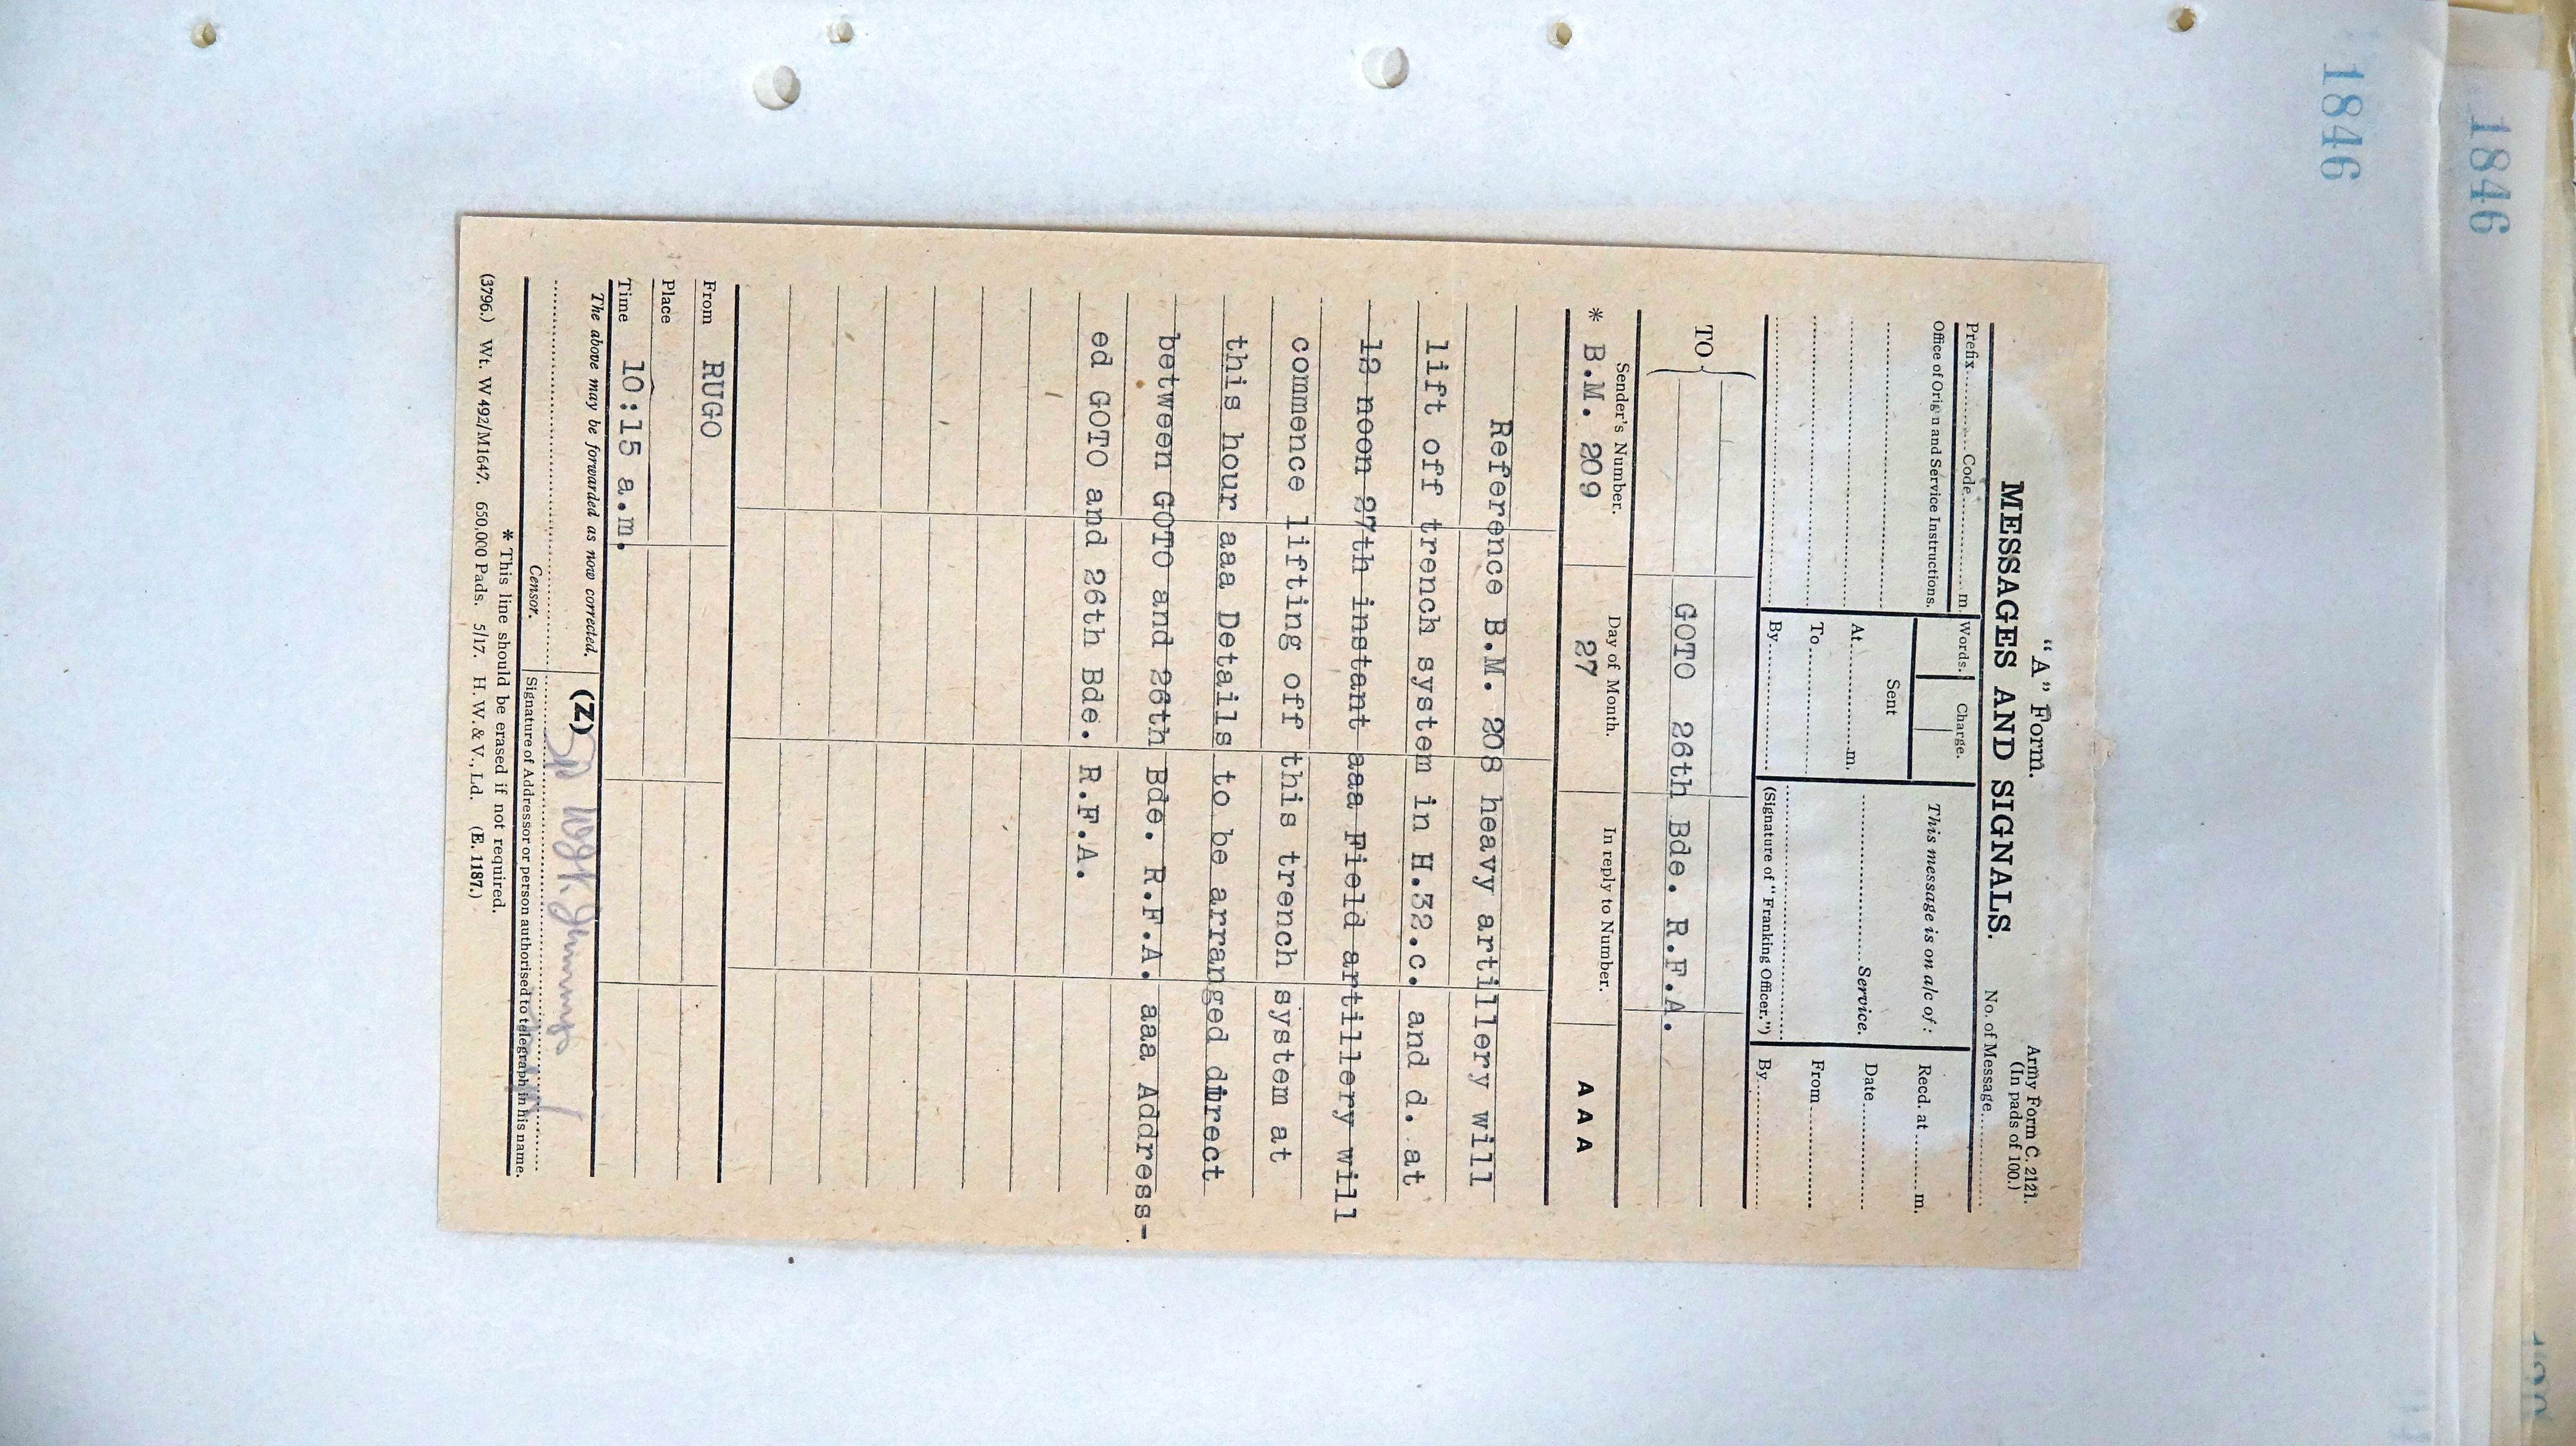 1846
1846
"A" Form.
Army Form C. 2121.
(In pads of 100.)
MESSAGES AND SIGNALS.
No. of Message
Prefix Code m.
Words.
Charge.
This message is on a/c of:
Recd. at m.
Office of Origin and Service Instructions.
Sent
Date
At m.
Service.
To
From
By
(Signature of "Franking Officer.")
By
TO
GOTO 26th Bde. R.F.A.
Sender's Number.
Day of Month.
In reply to Number.
* B.M. 209
27
A A A
Reference B.M. 208 heavy artillery will
lift off trench system in H.32.c. and d. at
12 noon 27th instant aaa Field artillery will
commence lifting off this trench system at
this hour aaa Details to be arranged direct
between GOTO and 26th Bde. R.F.A. aaa Address-
ed GOTO and 26th Bde. R.F.A.
From RUGO
Place
Time 10:15 a.m.
The above may be forwarded as now corrected.
(Z)
Censor.
Signature of Addressor or person authorised to telegraph in his name.
* This line should be erased if not required.
(3796.) Wt. W492/M1647. 650,000 Pads. 5/17. H.W.&V., Ld. (E. 1187.)